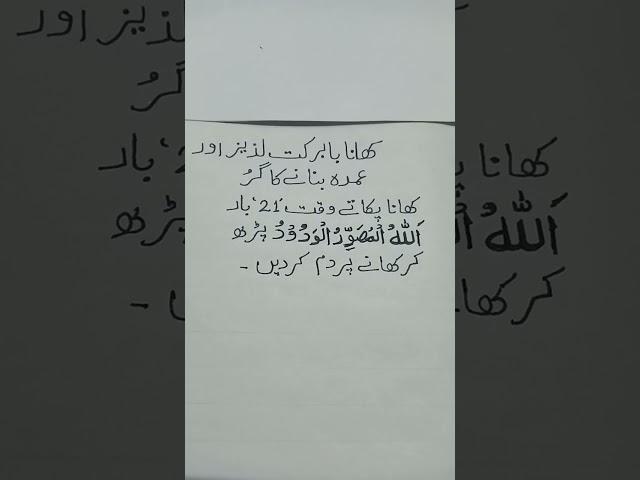 کھانا بابرکت لذیز اور
عمدہ بنانے کا گُر
کھانا پکاتے وقت '21' بار
اَللّٰهُ الْمُصَوِّرُ الْوَدُوْدُ پڑھ
کر کھانے پر دم کر دیں ۔